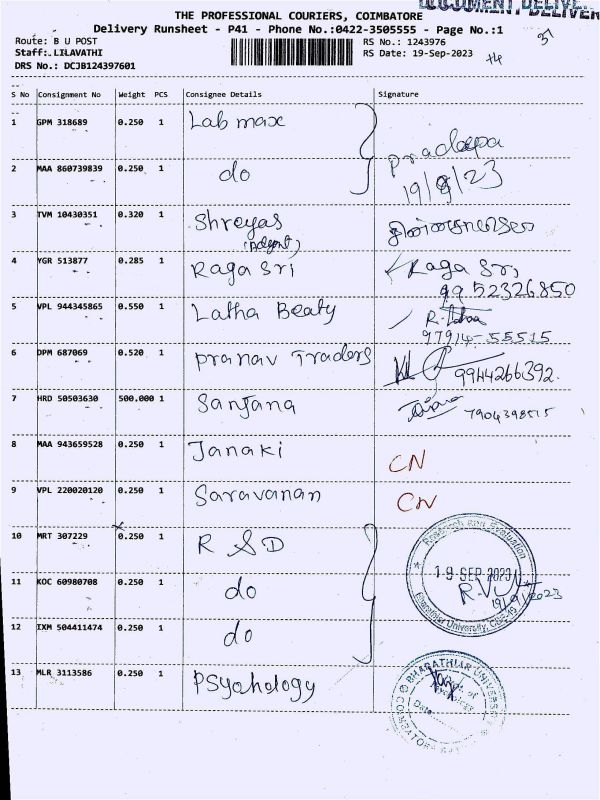 THE PROFESSIONAL COURIERS, COIMBATORE
DOCUMENT DELIVE
Delivery Runsheet - P41 - Phone No.:0422-3505555 - Page No.:1
Route: B U POST
RS No.: 1243976
Staff: LILAVATHI
RS Date: 19-Sep-2023
DRS No.: DCJB124397601
S No Consignment No Weight PCS Consignee Details Signature
1 GPM 318689 0.250 1 Lab max
Pradeepa
2 MAA 860739839 0.250 1 do
19/9/23
3 TVM 10430351 0.320 1 Shreyas
4 YGR 513877 0.285 1 Raga Sri Raga Sri
9952326850
5 VPL 944345865 0.550 1 Latha Beaty R. Latha
97914-55515
6 DPM 687069 0.520 1 Pranav Traders 9944266392
7 HRD 50503630 500.000 1 Sanjana 7904398515
8 MAA 943659528 0.250 1 Janaki CN
9 VPL 220020120 0.250 1 Saravanan CN
10 MRT 307229 0.250 1 R S D
Research and Evaluation
19 SEP 2023
11 KOC 60980708 0.250 1 do
19/9/2023
Bharathiar University, CBE-46
12 IXM 504411474 0.250 1 do
13 MLR 3113586 0.250 1 Psychology
BHARATHIAR UNIVERSITY
Date
COIMBATORE